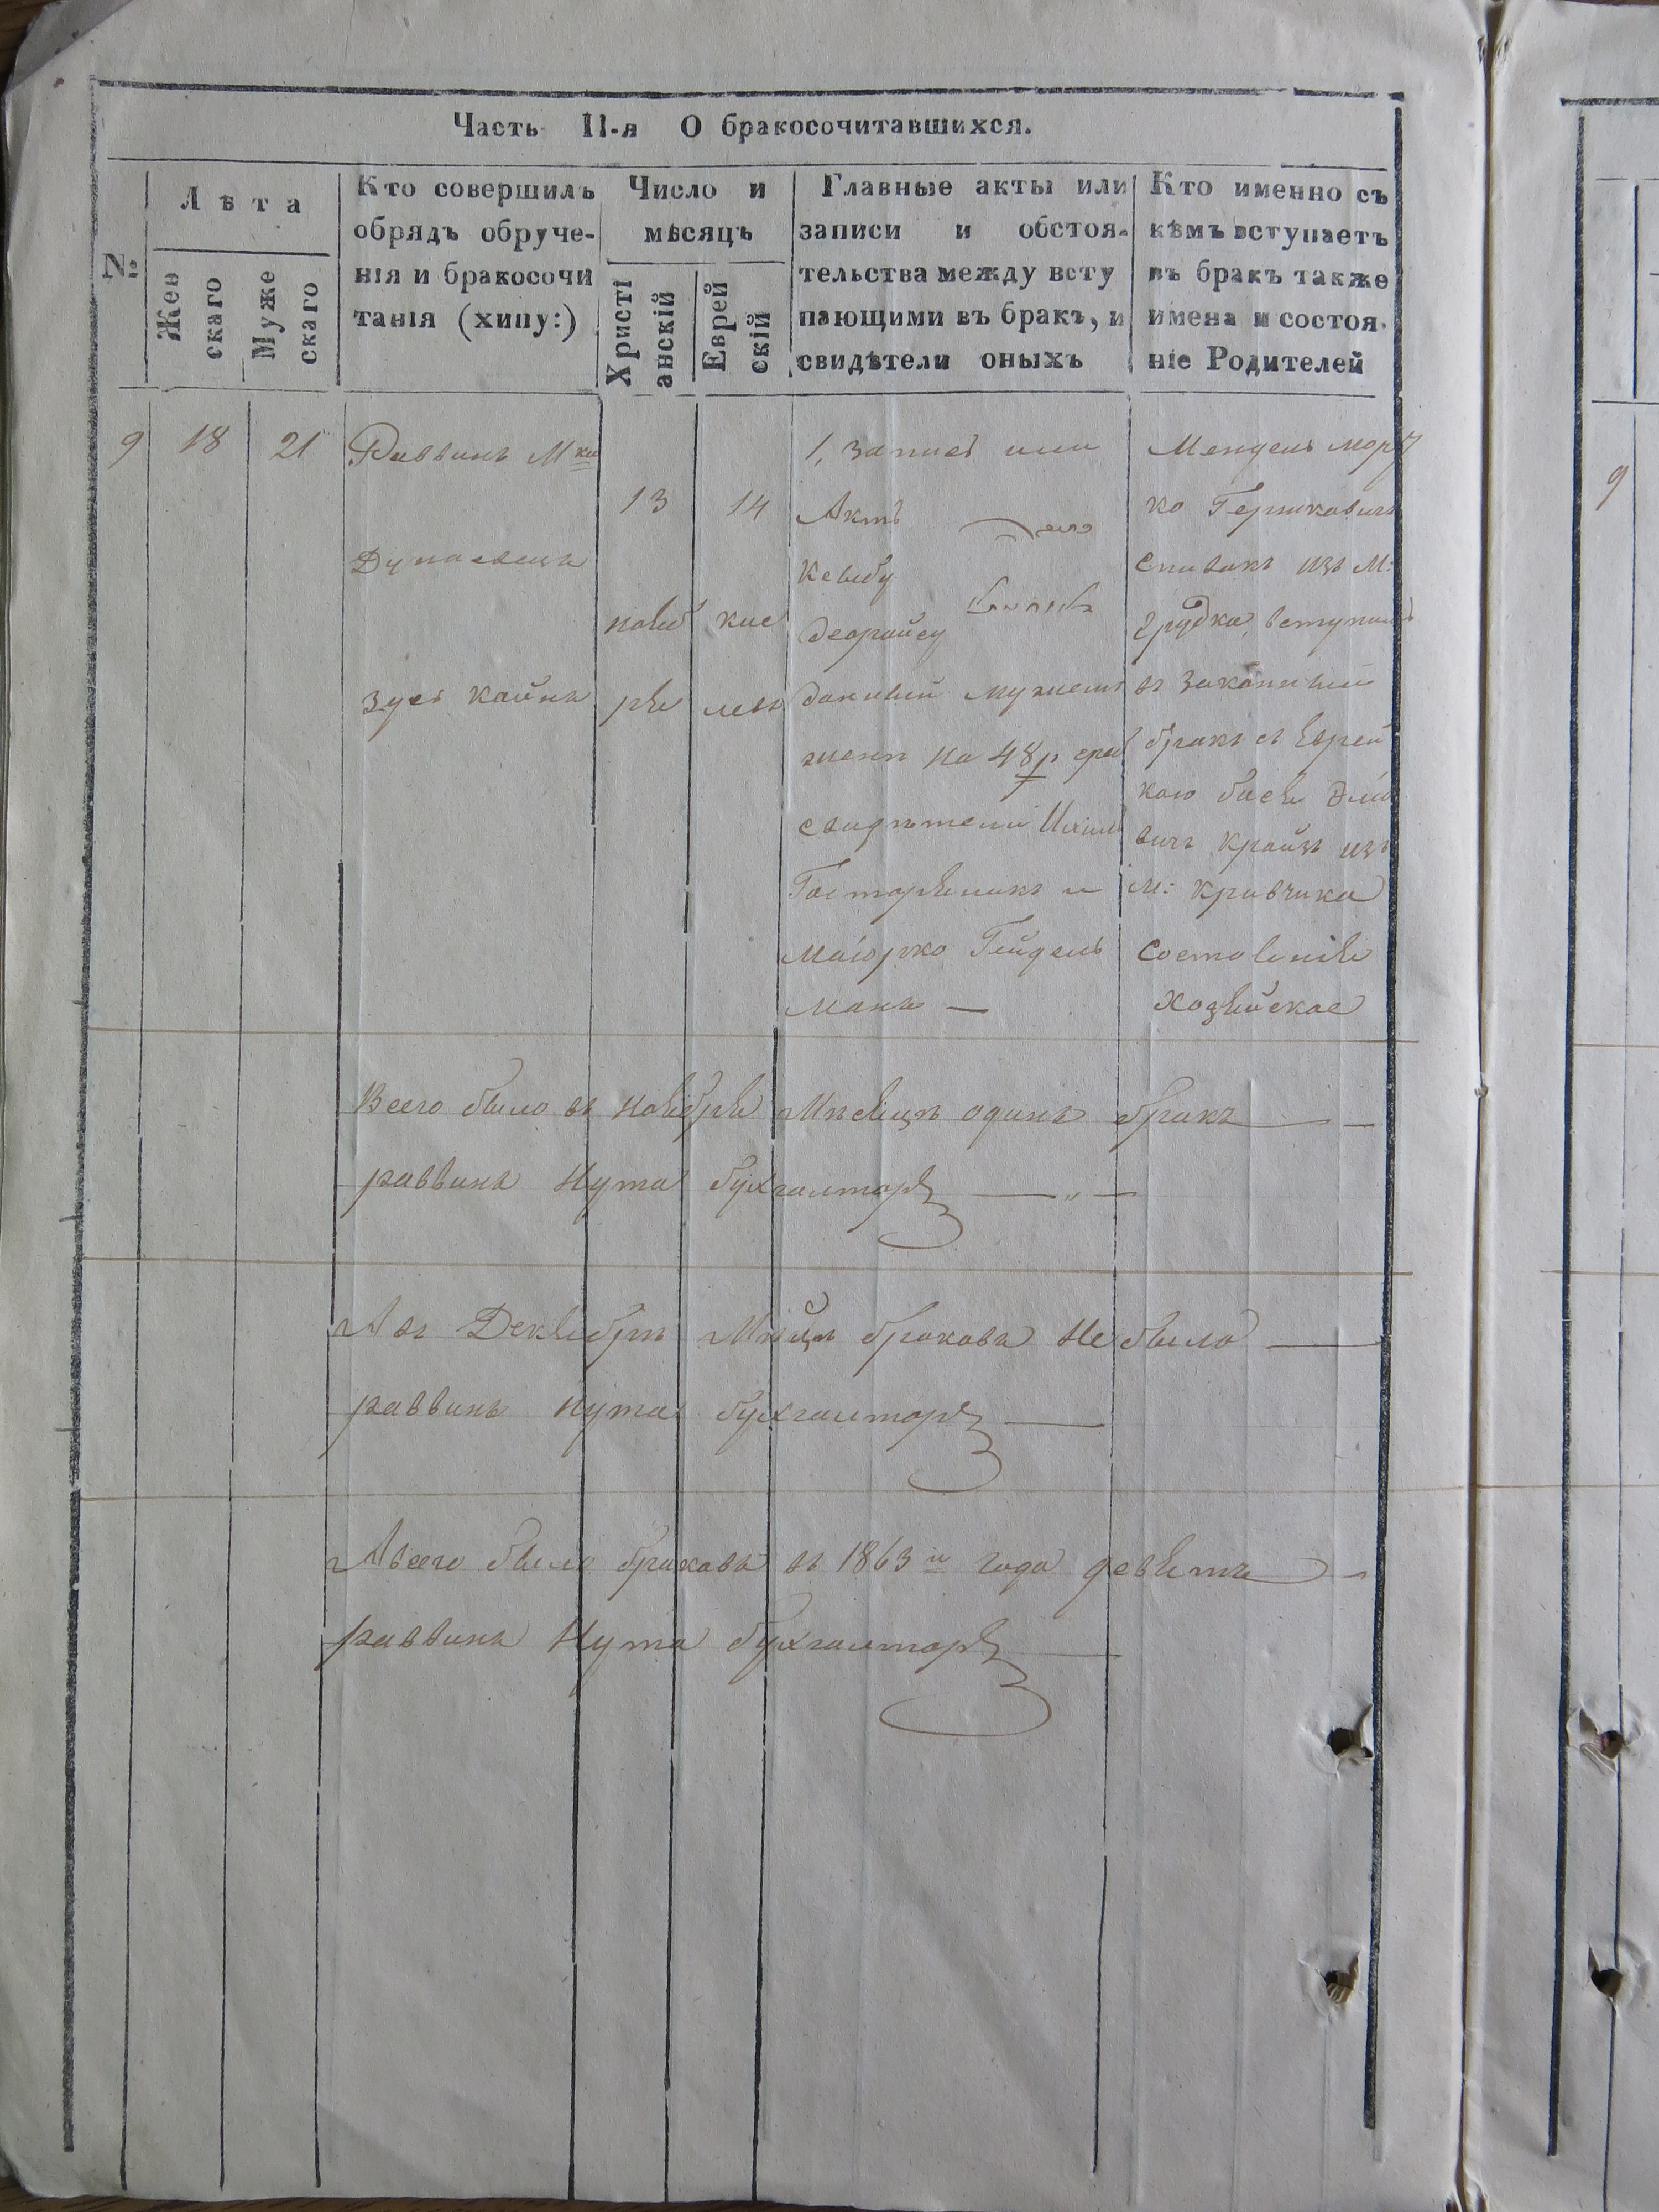 Часть II-я О бракосочитавшихся.
№
Лѣта
Жен
скаго
Муже
скаго
Кто совершилъ
обрядъ обруче-
нія и бракосочи
танія (хипу:)
Число и
мѣсяцъ
Христі
анскій
Еврей
скій
Главные акты или
записи и обстоя-
тельства между всту
пающими въ бракъ, и
свидѣтели оныхъ
Кто именно съ
кѣмъ вступаетъ
въ бракъ также
имена и состоя-
ніе Родителей
9
18
21
Раввинъ Мка
Дунаевецъ
Зусь Кайнъ
13
нояб
ря
14
кис
левъ
1, Запись или
Актъ
Кешбу
деорайсу
данный мужемъ
женѣ на 48 р сереб
свидѣтели
и
Маіорко
манъ —
Мендель Морд
ко Гершковичъ
Спивакъ изъ М:
Грудка, вступилъ
въ законный
бракъ съ Еврей
кою
вичъ Крайзъ изъ
М: Кравчика
Состояніе
Хозяйское
Всего было въ Ноябрѣ Мѣсяцѣ одинъ бракъ —
раввинъ Нута Бухгалтеръ — „ —
А въ Декябрѣ Мѣцѣ браковъ Не было —
раввинъ Нута Бухгалтеръ —
А всего было браковъ въ 1863 м года девять —
раввинъ Нута Бухгалтеръ —
9